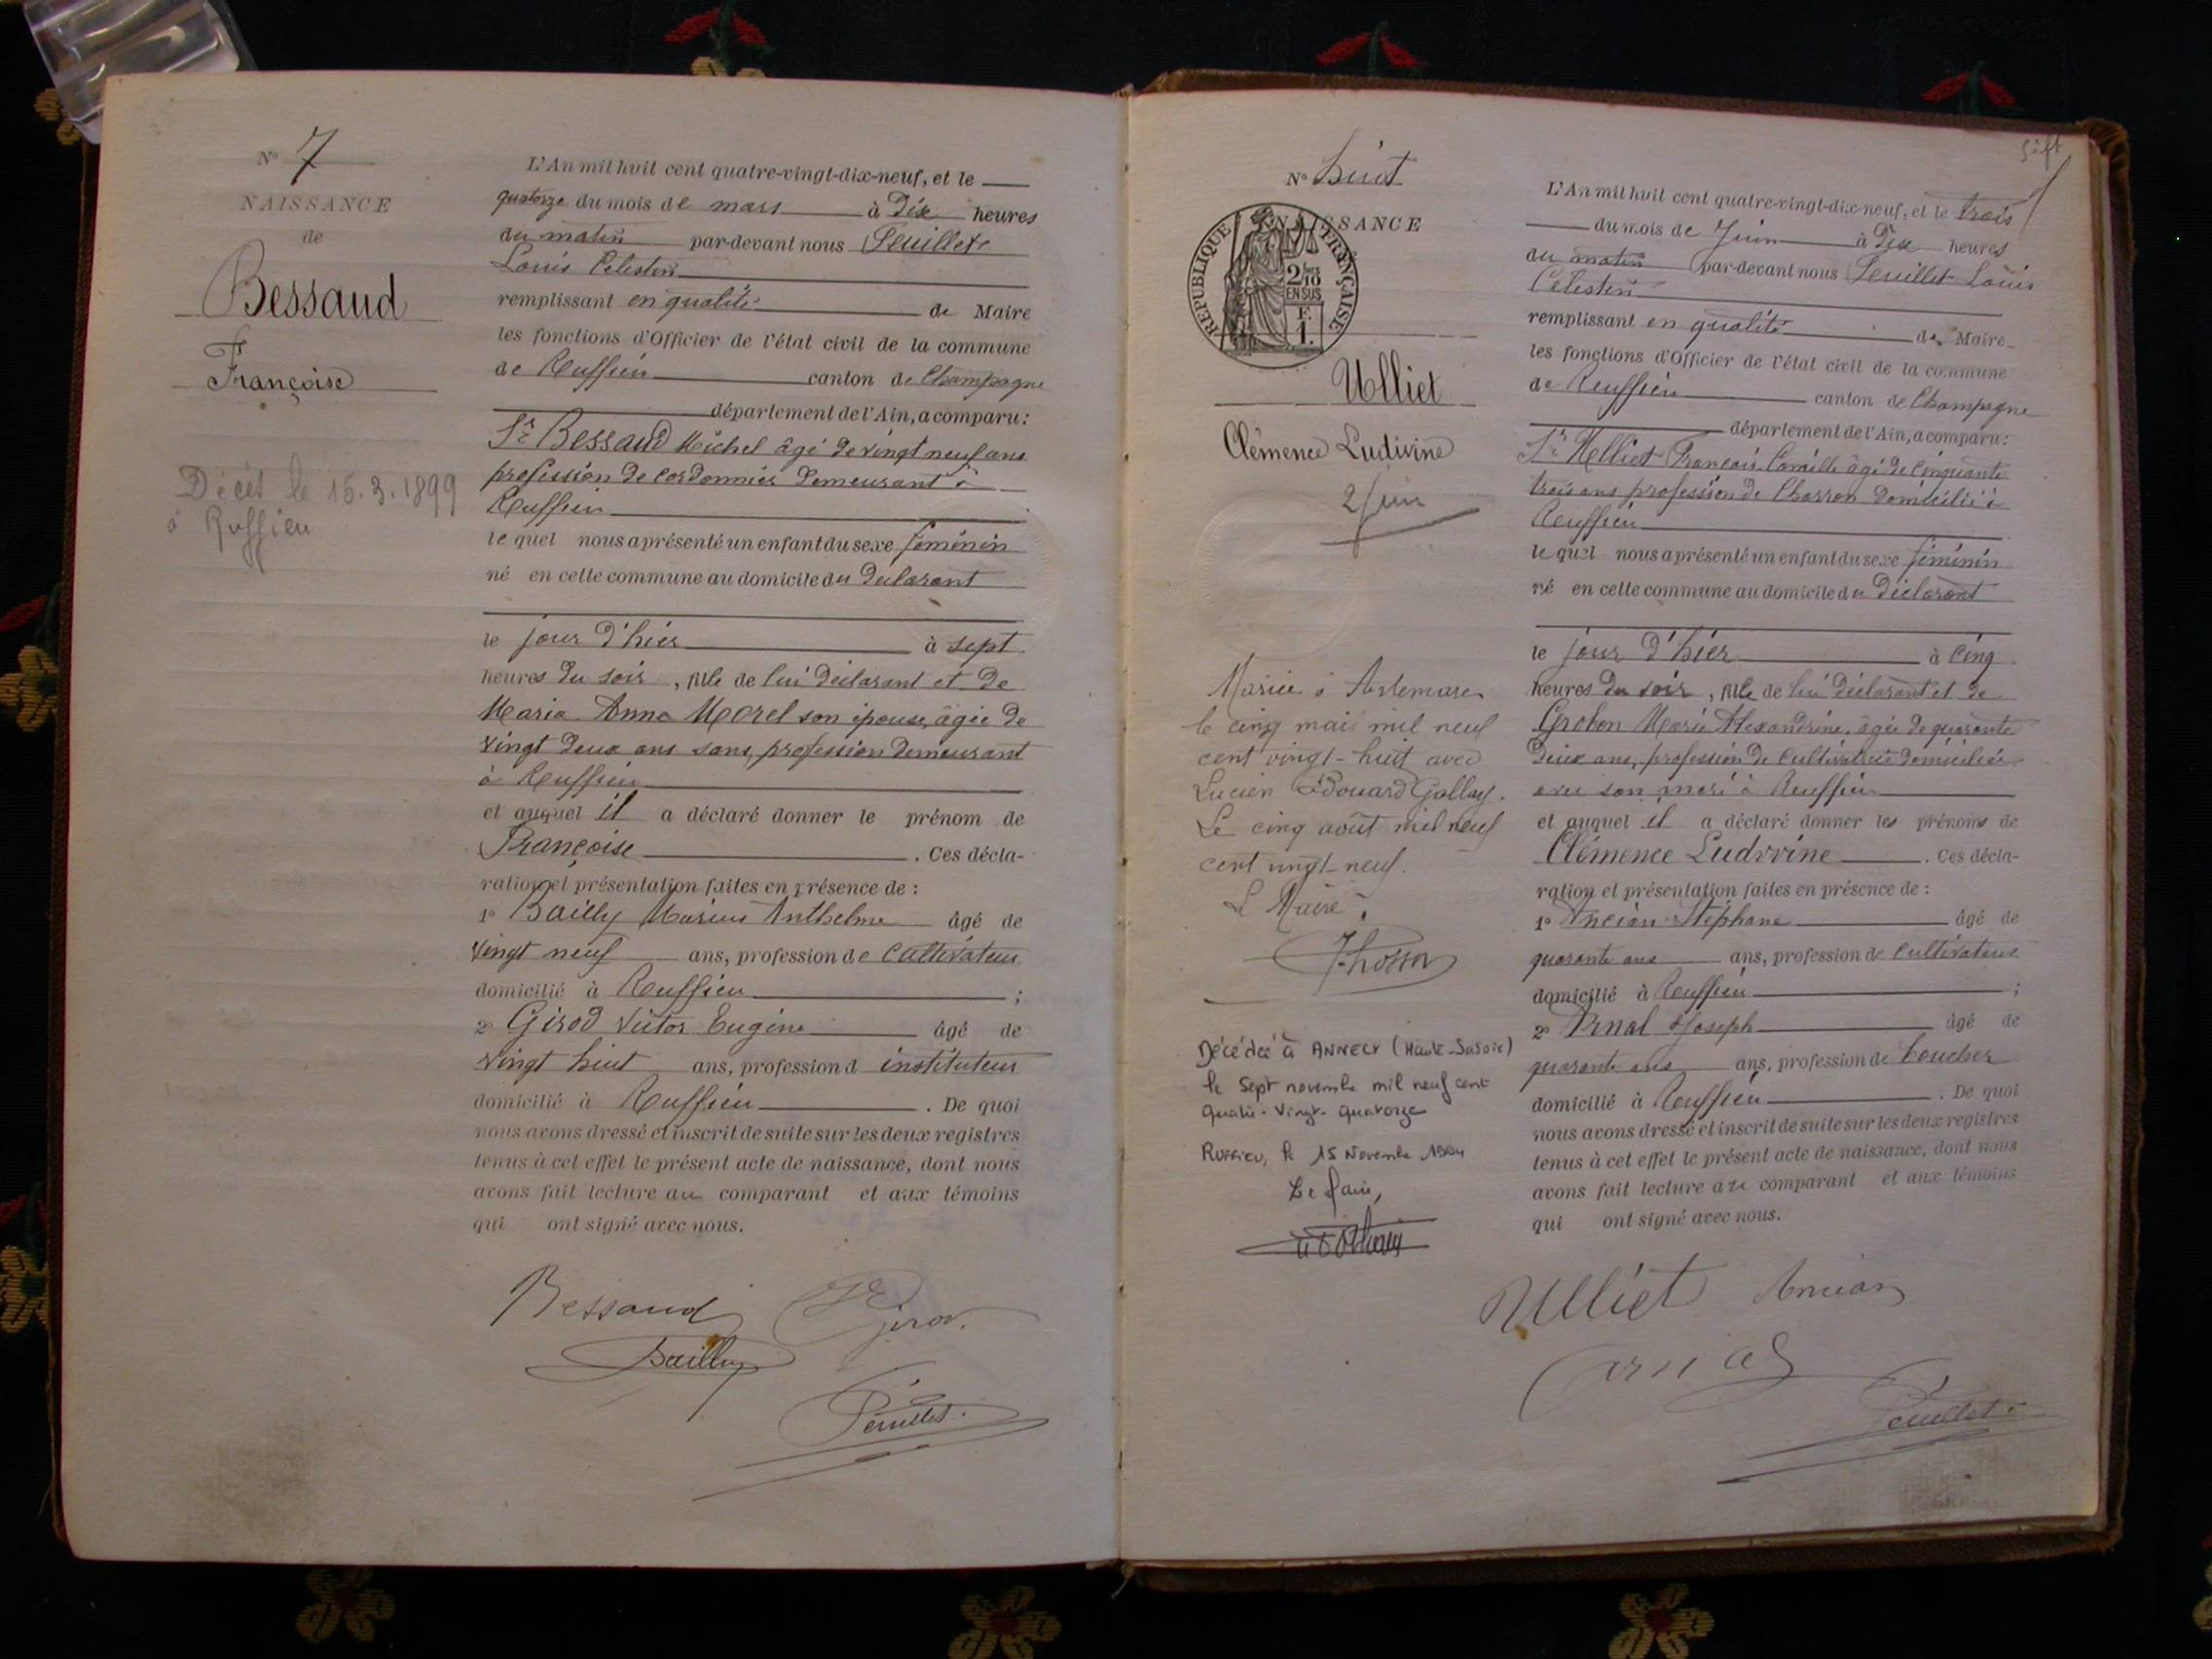 N° 7
NAISSANCE
de
Bessaud
Françoise
Décès le 15.3.1899
à Ruffieu
L'An mil huit cent quatre-vingt-dix-neuf, et le
quatorze du mois de mars à Dix heures
du matin par-devant nous Peuillet
Louis Celestin
remplissant en qualité de Maire
les fonctions d'Officier de l'état civil de la commune
de Ruffieu canton de Champagne
département de l'Ain, a comparu :
Sr Bessaud Michel âgé de vingt neuf ans
profession de cordonnier demeurant à
Ruffieu
le quel nous a présenté un enfant du sexe féminin
né en cette commune au domicile du déclarant
le jour d'hier à sept
heures du soir, fille de lui déclarant et de
Maria Anna Morel son épouse, âgée de
vingt deux ans sans profession demeurant
à Ruffieu
et auquel il a déclaré donner le prénom de
Françoise. Ces décla-
ration et présentation faites en présence de :
1° Bailly Marius Anthelme âgé de
vingt neuf ans, profession de cultivateur
domicilié à Ruffieu ;
2° Girod Victor Eugène âgé de
vingt huit ans, profession d instituteur
domicilié à Ruffieu. De quoi
nous avons dressé et inscrit de suite sur les deux registres
tenus à cet effet le présent acte de naissance, dont nous
avons fait lecture au comparant et aux témoins
qui ont signé avec nous.
Bessaud Girod
Bailly
Peuillet
N° huit
NAISSANCE
RÉPUBLIQUE FRANÇAISE
2/10
EN SUS
F.
1.
Ulliet
Clémence Ludivine
2 Juin
Mariée à Artemare
le cinq mai mil neuf
cent vingt-huit avec
Lucien Edouard Gallay.
Le cinq août mil neuf
cent vingt-neuf.
Le Maire,
Décédée à ANNECY (Haute-Savoie)
le sept novembre mil neuf cent
quatre-vingt-quatorze
Ruffieu, le 15 Novembre 1994
Le Maire,
L'An mil huit cent quatre-vingt-dix-neuf, et le trois
du mois de Juin à Dix heures
du matin par-devant nous Peuillet Louis
Celestin
remplissant en qualité de Maire
les fonctions d'Officier de l'état civil de la commune
de Ruffieu canton de Champagne
département de l'Ain, a comparu :
Sr Ulliet François Camille âgé de cinquante
trois ans profession de Charron domicilié à
Ruffieu
le quel nous a présenté un enfant du sexe féminin
né en cette commune au domicile du déclarant
le jour d'hier à cinq
heures du soir, fille de lui déclarant et de
Grobon Marie Alexandrine, âgée de quarante
deux ans, profession de cultivatrice domiciliée
avec son mari à Ruffieu
et auquel il a déclaré donner les prénoms de
Clémence Ludivine. Ces décla-
ration et présentation faites en présence de :
1° Ancian Stéphane âgé de
quarante ans ans, profession de cultivateur
domicilié à Ruffieu ;
2° Arnal Joseph âgé de
quarante ans ans, profession de boucher
domicilié à Ruffieu. De quoi
nous avons dressé et inscrit de suite sur les deux registres
tenus à cet effet le présent acte de naissance, dont nous
avons fait lecture au comparant et aux témoins
qui ont signé avec nous.
Ulliet Ancian
arnal
Peuillet